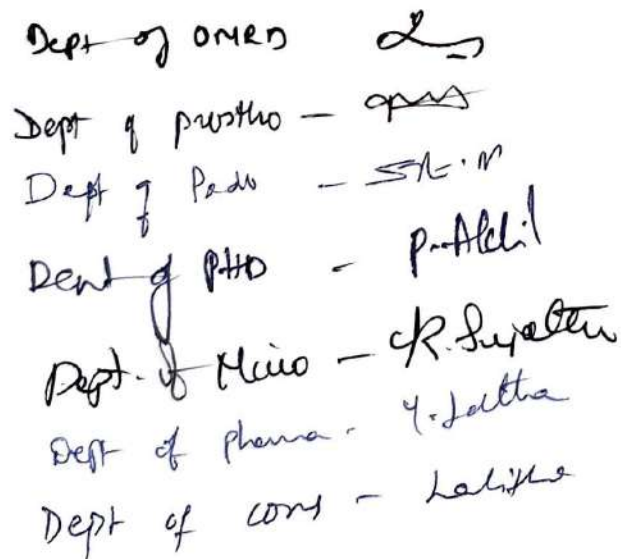 Dept of OMRD
Dept of prostho -
Dept of Pedo -
Dept of PHD - P. Akhil
Dept. of Micro - K. Sujatha
Dept of pharma - Y. Lalitha
Dept of cons - Lalitha